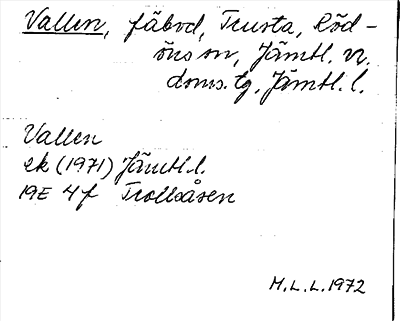 Vallen, fäbod, Trusta, Röd-
öns sn, Jämtl. v.
doms.tg, Jämtl. l.
Vallen
ek (1971) Jämtl.l.
19E 4f Trollsåsen
M.L.L.1972